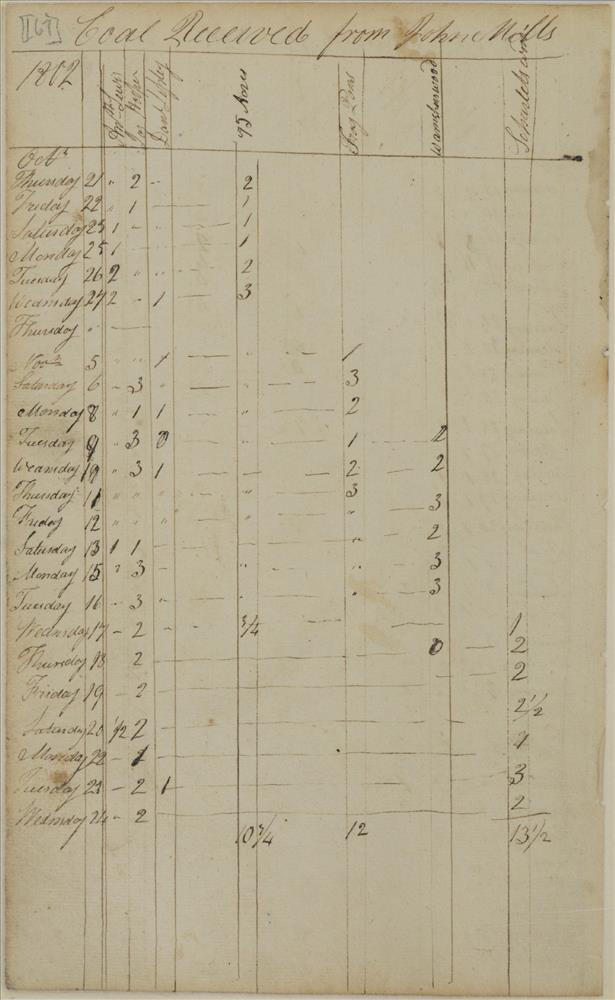 [167] Coal Received from John Mills
1802
95 Acres
Oct.r
Thursday 21 " 2 - 2
Friday 22 " 1 - 1
Saturday 23 1 - " - 1
Monday 25 1 - 1
Tuesday 26 2 " " - 2
Wednsday 27 2 - 1 - 3
Thursday " -
Nov.r 5 " " 1 - " - 1
Saturday 6 - 3 " - " - 3
Monday 8 " 1 1 - " - 2
Tuesday 9 " 3 0 - " - 1 - 2
Weansday 10 " 3 1 - - 2 - 2
Thursday 11 " " " - " - 3
Friday 12 " " " - " - " - 3
Saturday 13 1 1 - " 2
Monday 15 " 3 - " - " - 3
Tuesday 16 - 3 " - " - " - 3
Wednsday 17 - 2 - 3/4 - 1
Thursday 18 2 - 0 - 2
Friday 19 - 2 - 2
Saturday 20 1/2 2 - 2 1/2
Monday 22 - 1 - 1
Tuesday 23 - 2 1 - 3
Wednsday 24 - 2 - 2
10 3/4 12 13 1/2